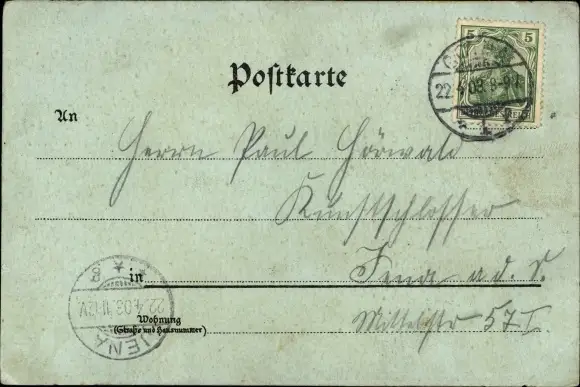 Postkarte
5 5
22.4.03. 8-9V.
An
Herrn Paul Hörwald
Kunstschlosser
in Jena a.d. S.
JENA
22.4.03. 11-12V.
Wohnung
(Straße und Hausnummer)
Mittelstr 57 I